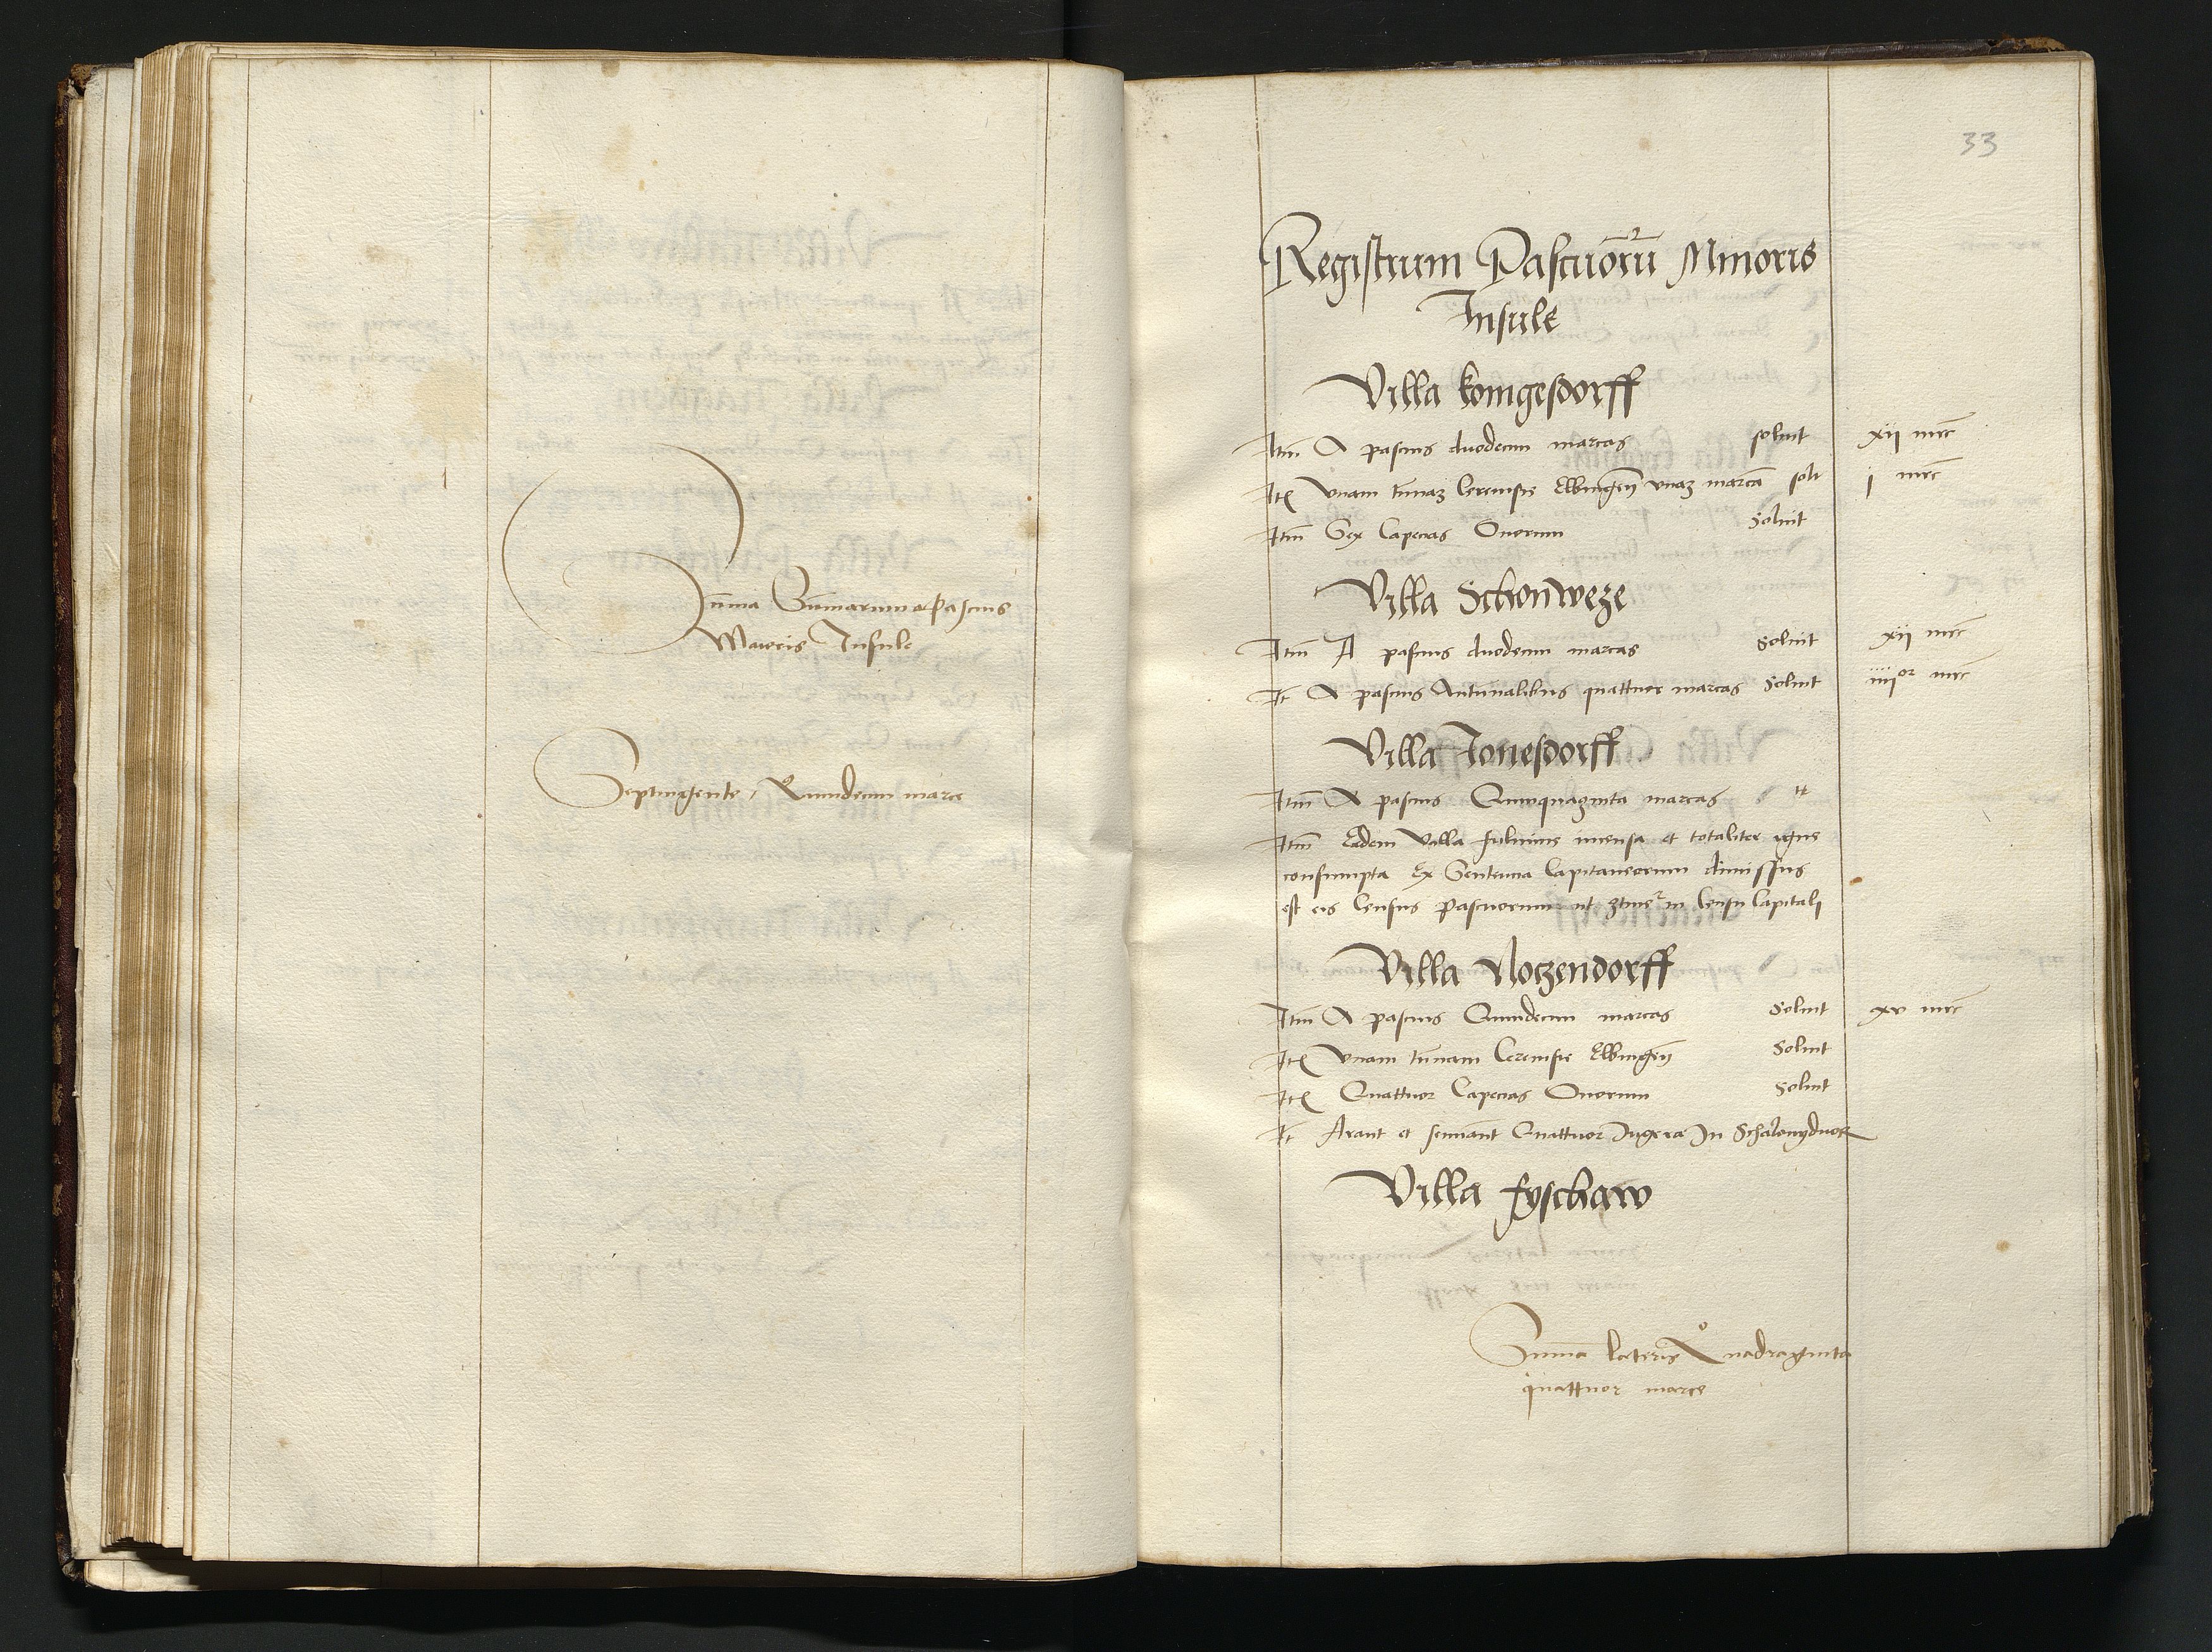 Su̅ma Su̅marum a Pascuis
Maioris Insule
Septingente Quindecim marce
33
Registrum Pascuoru̅ Minoris
Insule
Villa konigesdorff
Itm̅ A pascuis duodecim marcas soluit xij mrc
Ite̅ vnam tu̅naʒ Cereuisie Elbingen̅ vnaʒ marca̅ solt j mrc
Itm̅ Sex Capecias Ouorum Soluit
Villa Schonweze
Itm̅ A pascuis duodecim marcas Soluit xij mrc
It A pascuis Autu̅nalibus quattuor marcas Soluit iiijor mrc
Villa Jonesdorff
Itm̅ A pascuis Quinquaginta marcas tt
Itm̅ Eadem Villa fulmine incensa et totaliter igne
consumpta Ex Sentencia Capitaneorum dimissus
est eis Census Pascuorum ut ʒtinetr in Censu Capitali
Villa Noczendorff
Itm̅ A pascuis Quindecim marcas Soluit xv mrc
Ite̅ vnam tu̅nam Cereuisie Elbingen̅ Soluit
Ite̅ Quattuor Capecias Ouorum Soluit
It Arant et semina̅t Quattuor Jugera In Schalowydwor
Villa fyschaw
Su̅ma lateris Quadraginta
quattuor marce